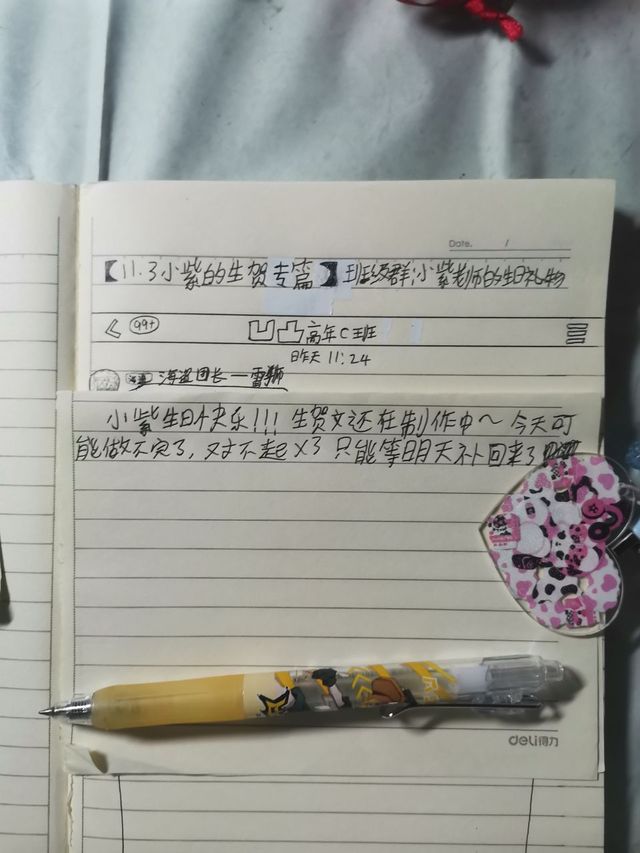 Date. /
【11.3小紫的生贺专篇】班级群:小紫老师的生日礼物
< 99+ 凹凸高年C班
昨天 11:24
海盗团长—雷狮
小紫生日快乐!!! 生贺文还在制作中~ 今天可
能做不完了,对不起 X3 只能等明天补回来了
deli得力